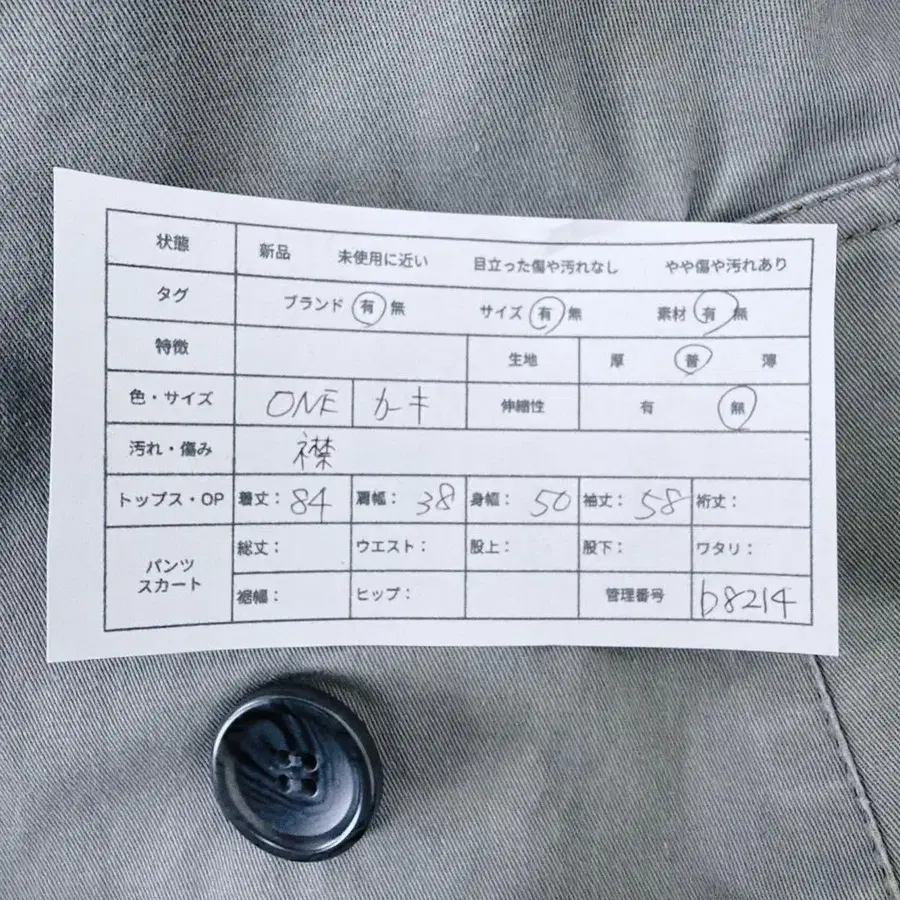 状態 新品 未使用に近い 目立った傷や汚れなし やや傷や汚れあり
タグ ブランド 有 無 サイズ 有 無 素材 有 無
特徴 生地 厚 普 薄
色・サイズ ONE カーキ 伸縮性 有 無
汚れ・傷み 襟
トップス・OP 着丈: 84 肩幅: 38 身幅: 50 袖丈: 58 裄丈:
パンツ スカート 総丈: ウエスト: 股上: 股下: ワタリ:
裾幅: ヒップ: 管理番号 b8214